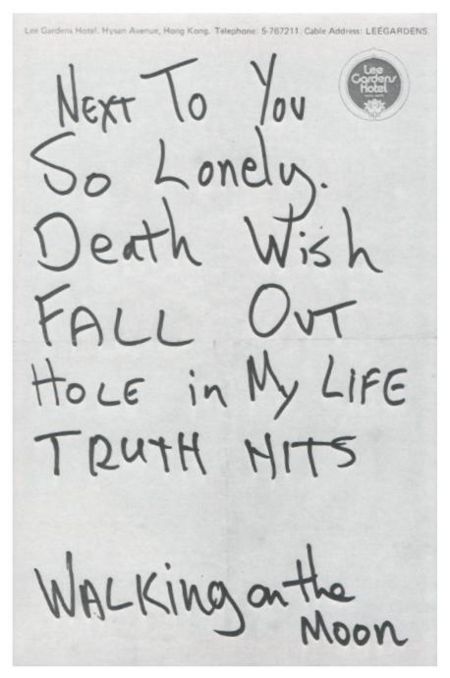 Lee Gardens Hotel. Hysan Avenue, Hong Kong. Telephone: 5-767211. Cable Address: LEEGARDENS.
Lee
Gardens
Hotel
NEXT TO YOU
So Lonely.
Death Wish
FALL OUT
HOLE in My LIFE
TRUTH HITS
WALKing on the
MOON